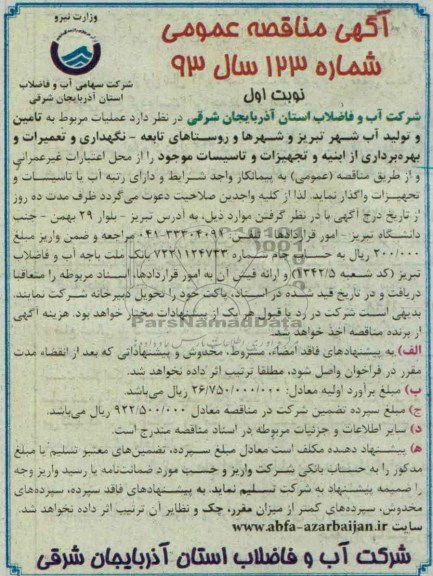 وزارت نیرو
شرکت سهامی آب و فاضلاب
استان آذربایجان شرقی
آگهی مناقصه عمومی
شماره ۱۲۳ سال ۹۳
نوبت اول
شرکت آب و فاضلاب استان آذربایجان شرقی در نظر دارد عملیات مربوط به تامین
و تولید آب شهر تبریز و شهرها و روستاهای تابعه - نگهداری و تعمیرات و
بهره‌برداری از ابنیه و تجهیزات و تاسیسات موجود را از محل اعتبارات غیرعمرانی
و از طریق مناقصه (عمومی) به پیمانکار واجد شرایط و دارای رتبه آب یا تاسیسات و
تجهیزات واگذار نماید. لذا از کلیه واجدین صلاحیت دعوت می‌گردد ظرف مدت ده روز
از تاریخ درج آگهی با در نظر گرفتن موارد ذیل، به آدرس تبریز - بلوار ۲۹ بهمن - جنب
دانشگاه تبریز - امور قراردادها - تلفن ۳۳۳۰۴۰۹۱-۰۴۱ مراجعه و ضمن واریز مبلغ
۲۰۰/۰۰۰ ریال به حساب جام شماره ۷۲۲۱۱۲۴۷۳۳ بانک ملت باجه آب و فاضلاب
تبریز (کد شعبه ۱۳۴۲/۵) و ارائه فیش آن به امور قراردادها، اسناد مربوطه را متعاقبا
دریافت و در تاریخ قید شده در اسناد، پاکت خود را تحویل دبیرخانه شرکت نمایند.
بدیهی است شرکت در رد یا قبول هر یک از پیشنهادات مختار خواهد بود. هزینه آگهی
از برنده مناقصه اخذ خواهد شد.
ParsNamadData
الف) به پیشنهادهای فاقد امضاء، مشروط، مخدوش و پیشنهاداتی که بعد از انقضاء مدت
مقرر در فراخوان واصل شود، مطلقا ترتیب اثر داده نخواهد شد.
ب) مبلغ برآورد اولیه معادل: ۲۶/۷۵۰/۰۰۰/۰۰۰ ریال می‌باشد.
ج) مبلغ سپرده تضمین شرکت در مناقصه معادل ۹۲۲/۵۰۰/۰۰۰ ریال می‌باشد.
د) سایر اطلاعات و جزئیات مربوطه در اسناد مناقصه مندرج است.
ه) پیشنهاد دهنده مکلف است معادل مبلغ سپرده، تضمین‌های معتبر تسلیم یا مبلغ
مذکور را به حساب بانکی شرکت واریز و حسب مورد ضمانت‌نامه یا رسید واریز وجه
را ضمیمه پیشنهاد به شرکت تسلیم نماید. به پیشنهادهای فاقد سپرده، سپرده‌های
مخدوش، سپرده‌های کمتر از میزان مقرر، چک و نظایر آن ترتیب اثر داده نخواهد شد.
سایت www.abfa-azarbaijan.ir
شرکت آب و فاضلاب استان آذربایجان شرقی